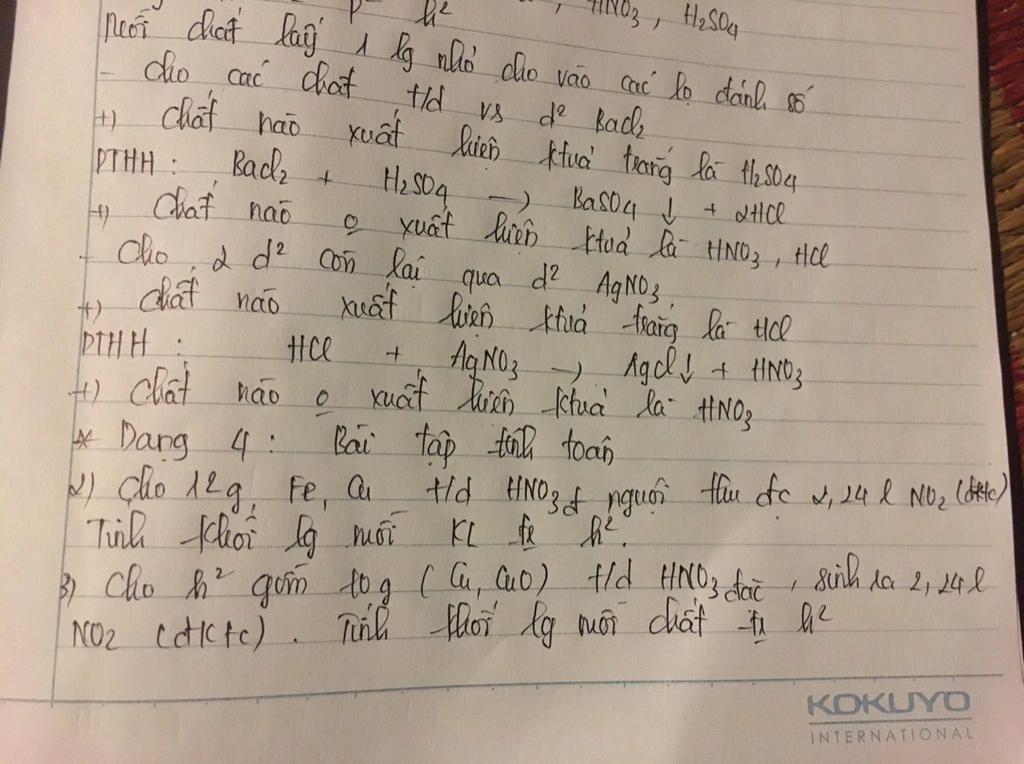 p² h² , HNO3, H2SO4
Mỗi chất lấy 1 lg nhỏ cho vào các lọ đánh số
- Cho các chất t/d vs d² BaCl2
+) Chất nào xuất hiện ktuả trắng là H2SO4
PTHH: BaCl2 + H2SO4 → BaSO4 ↓ + 2HCl
+) Chất nào o xuất hiện ktuả là HNO3, HCl
- Cho 2 d² còn lại qua d² AgNO3
+) Chất nào xuất hiện ktuả trắng là HCl
PTHH: HCl + AgNO3 → AgCl↓ + HNO3
+) Chất nào o xuất hiện ktuả là HNO3
* Dạng 4: Bài tập tính toán
2) Cho 12g Fe, Cu t/d HNO3đ nguội thu đc 2,24 l NO2 (đktc)
Tính khối lg mỗi KL tr h².
3) Cho h² gồm 10g (Cu, CuO) t/d HNO3 đặc, sinh ra 2,24 l
NO2 (đktc). Tính khối lg mỗi chất tr h²
KOKUYO
INTERNATIONAL